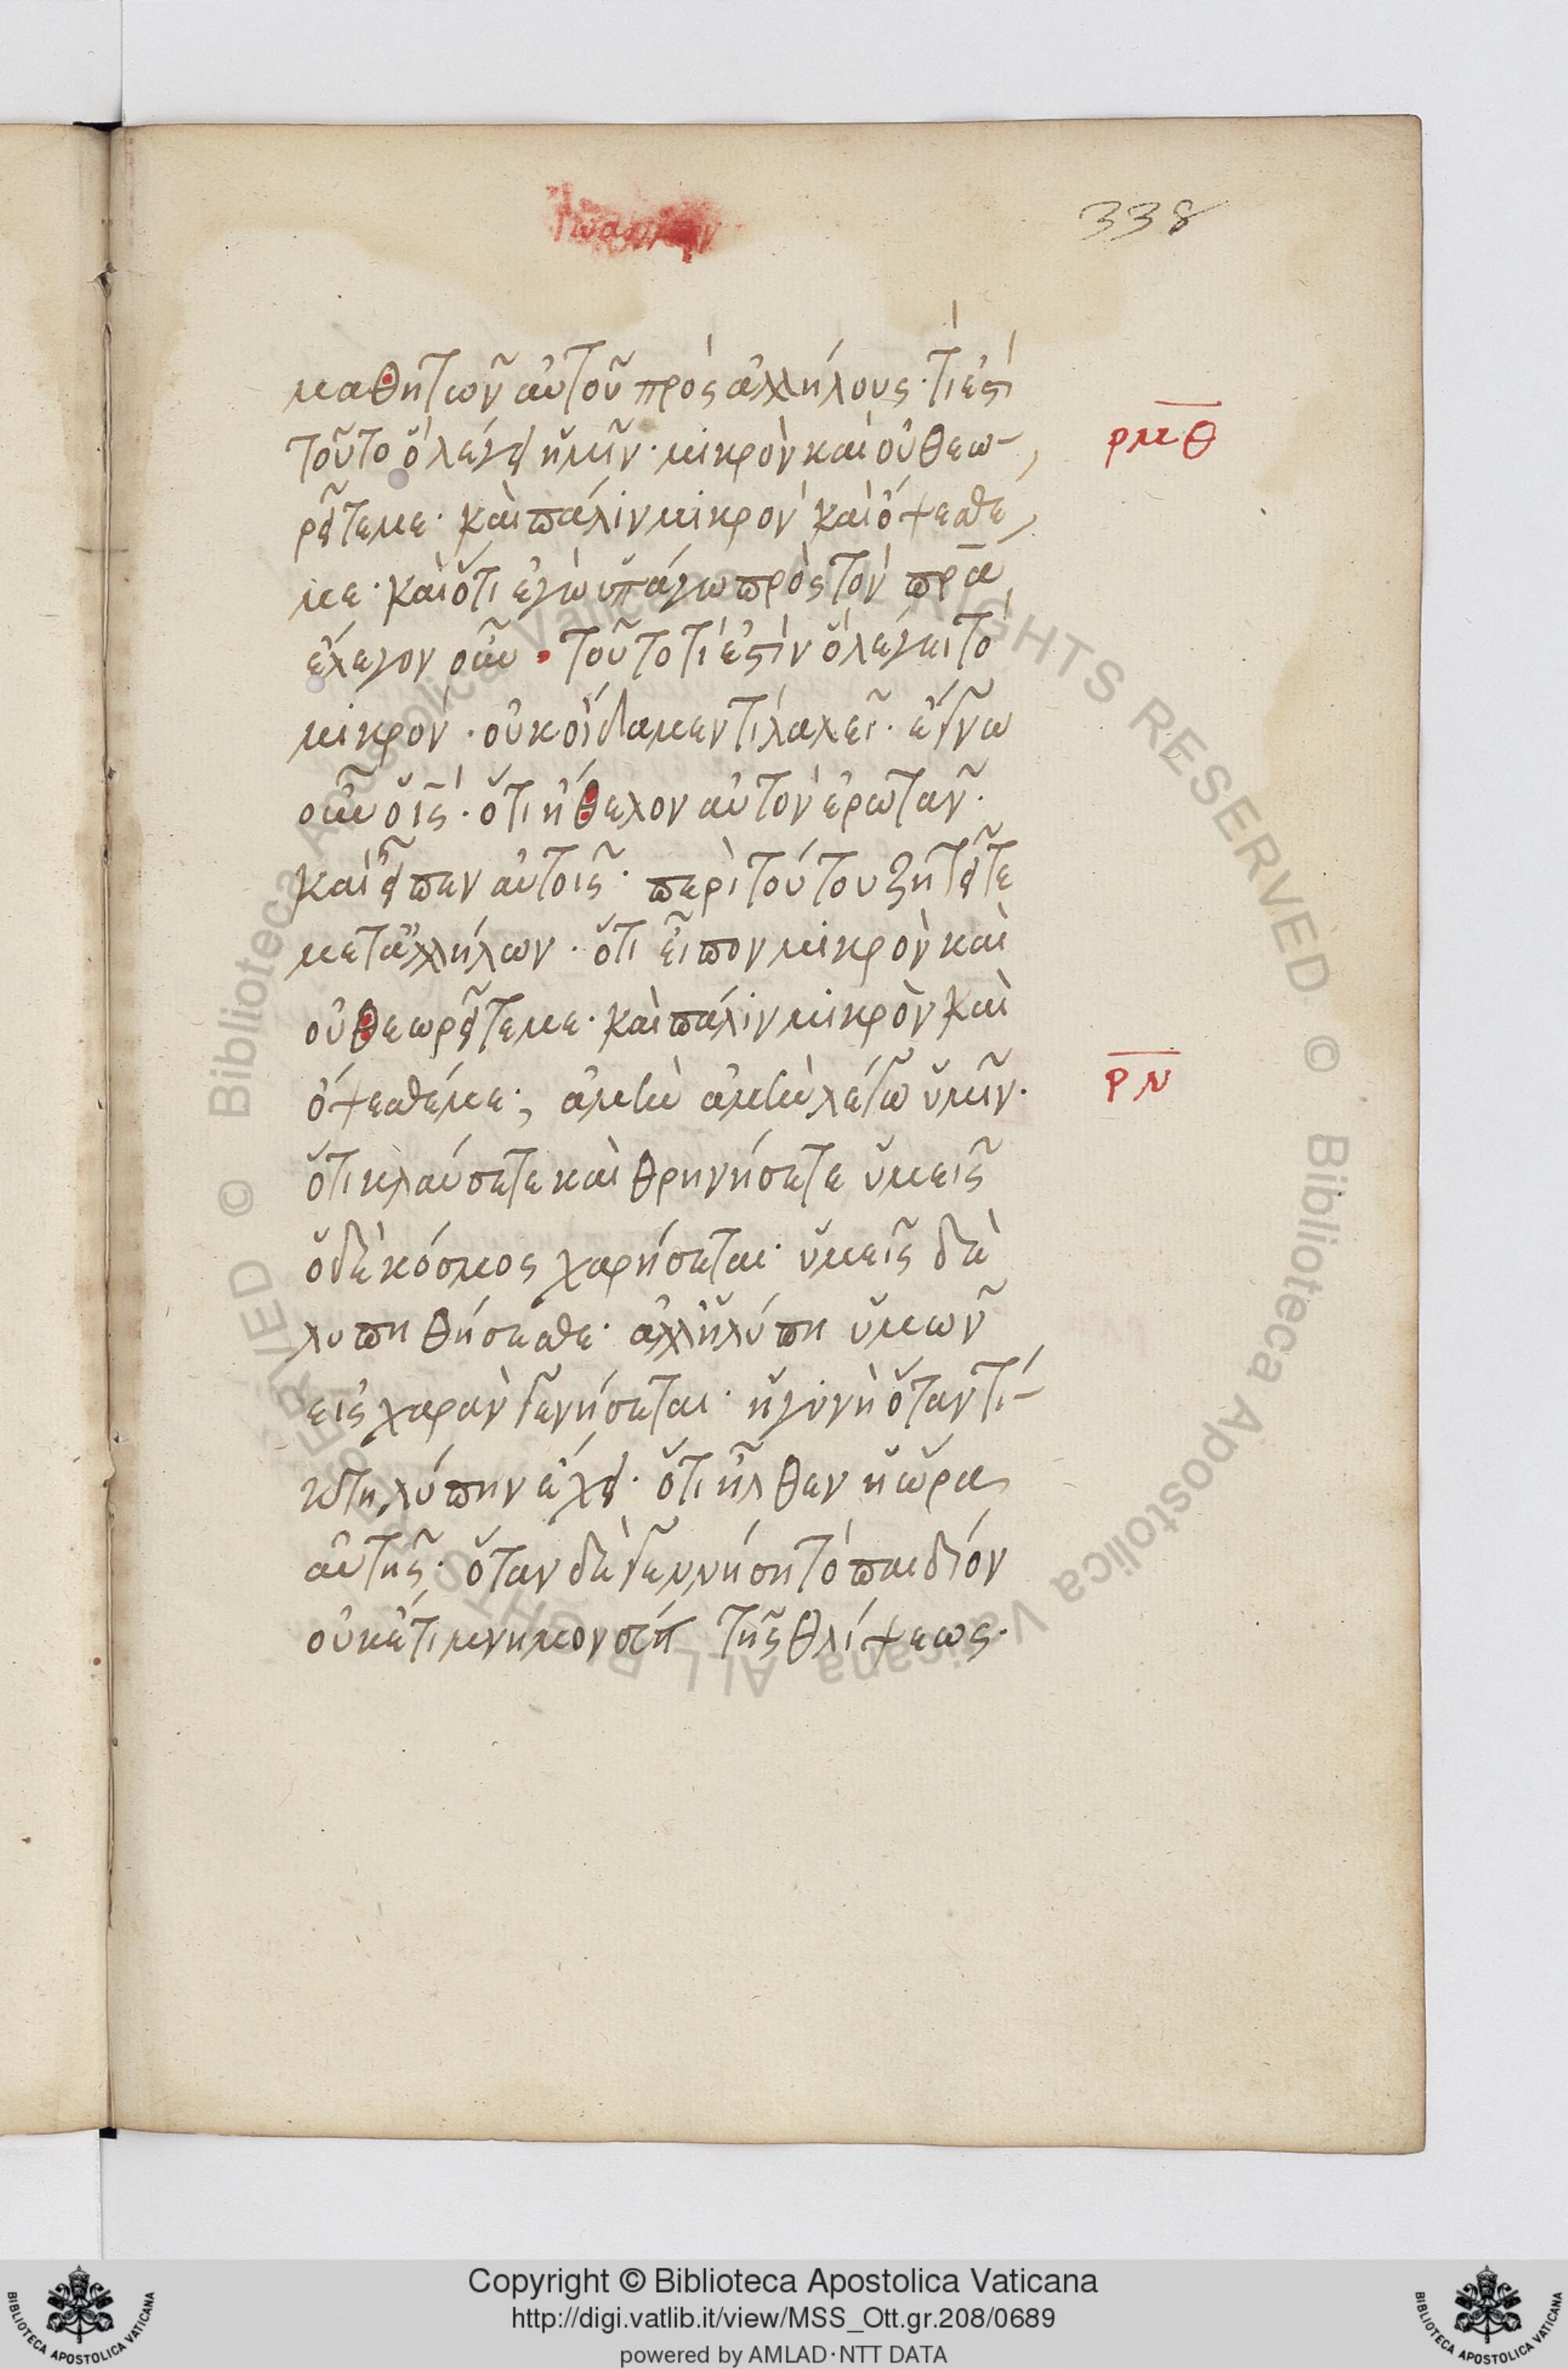 Ἰωάννην
338
μαθητῶν αὐτοῦ πρὸς ἀλλήλους· τί ἐστὶ
τοῦτο ὃ λέγει ἡμῖν· μικρὸν καὶ οὐ θεω-
ρεῖτέ με· καὶ πάλιν μικρὸν καὶ ὄψεσθε
με· καὶ ὅτι ἐγὼ ὑπάγω πρὸς τὸν πρ̅α
ἔλεγον οὖν · τοῦτο τί ἐστὶν ὃ λέγει τὸ
μικρόν · οὐκ οἴδαμεν τί λαλεῖ· ἔγνω
οὖν ὁ ι̅ς· ὅτι ἤθελον αὐτὸν ἐρωτᾶν·
καὶ εἶπεν αὐτοῖς· περὶ τούτου ζητεῖτε
μετ ἀλλήλων · ὅτι εἶπον μικρὸν καὶ
οὐ θεωρεῖτέ με· καὶ πάλιν μικρὸν καὶ
ὄψεσθέ με·, ἀμὴν ἀμὴν λέγω ὑμῖν·
ὅτι κλαύσετε καὶ θρηνήσετε ὑμεῖς
ὁ δὲ κόσμος χαρήσεται· ὑμεῖς δὲ
λυπηθήσεσθε· ἀλλ ἡ λύπη ὑμῶν
εἰς χαρὰν γενήσεται· ἡ γυνὴ ὅταν τί-
κτη λύπην ἔχει· ὅτι ἦλθεν ἡ ὥρα
αὐτῆς· ὅταν δὲ γεννήση τὸ παιδίον
οὐκέτι μνημονεύει τῆς θλίψεως·
ρμθ
ρν
© Biblioteca Apostolica Vaticana ALL RIGHTS RESERVED
© Biblioteca Apostolica Vaticana ALL RIGHTS RESERVED
Copyright © Biblioteca Apostolica Vaticana
http://digi.vatlib.it/view/MSS_Ott.gr.208/0689
powered by AMLAD·NTT DATA
BIBLIOTECA APOSTOLICA VATICANA
BIBLIOTECA APOSTOLICA VATICANA